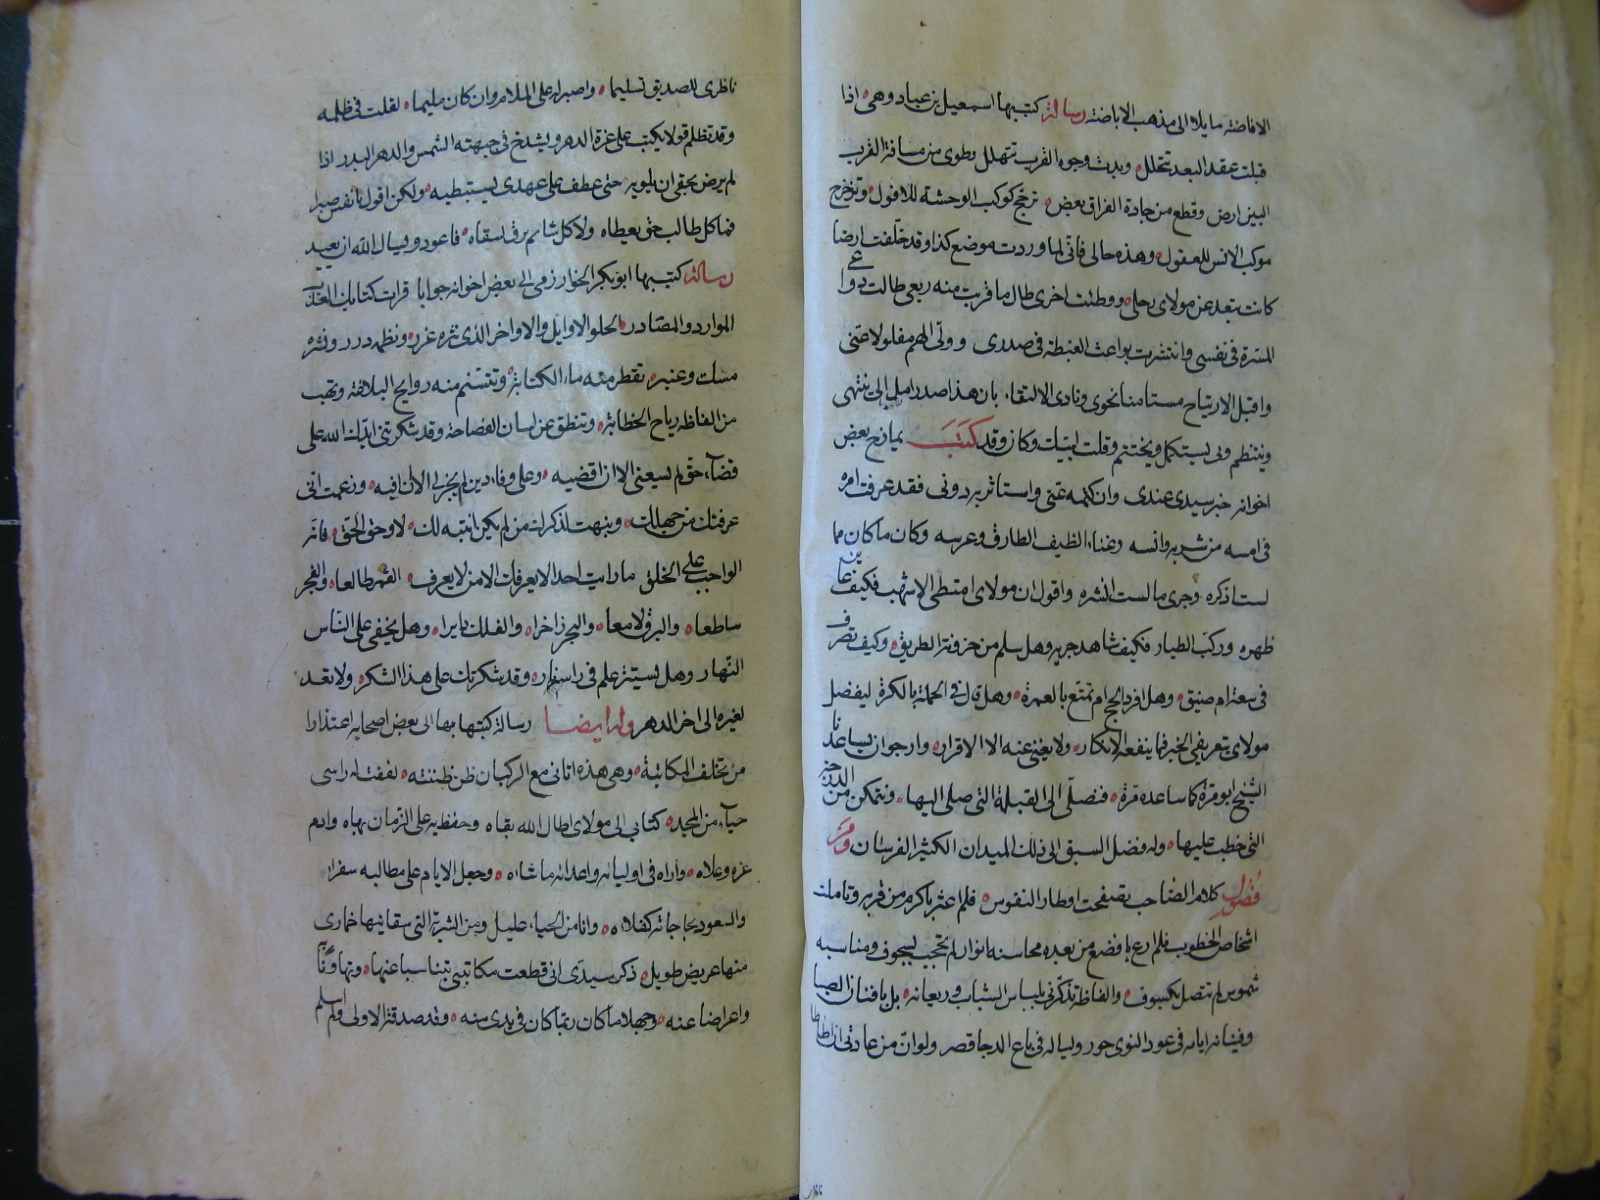 الافاضة مايلا الى مذهب الاباضة رسالة كتبها اسمعيل بن عباد وهى اذا
قبلت عقد البعد تتحلل وبدت وجوه القرب تتهلل يطوى من مسافة القرب
البين ارض وقطع من جادة الفراق بعض ترجح كوكب الوحشة للافول وتزحزح
موكب الانس للعقول وهذه حالى فانى لما وردت موضع كذا وقد خلفت ارضا
كانت تبعد عن مولاى رحلى ووطئت اخرى طال ما قربت منه ربعى طالت دواعى
المسرة فى نفسى وانتشرت بواعث الغبطة فى صدرى وولى الهم مفلولا عنى
واقبل الارتياح مستامنا نحوى ونادى الالتقاء بان هذا صدر املى الى ينتهى
وينتظم وبى يستكمل ويختتم وقلت لبيك وكان وقد كتب يمازح بعض
اخوانه خبر سيدى عندى وان كتمه عنى واستاثر به دونى فقد عرفت امره
فى امسه من شربه وانسه وغناء الطيف الطارق وعرسه وكان ما كان مما
لست اذكره وجرى ما لست انشره واقول ان مولاى امتطى الاشهب فكيف عاين
ظهره وركب الطيار فكيف شاهد جريه وهل سلم من حزونة الطريق وكيف تصرف
فى سعة ام ضيق وهل افرد الحج ام تمتع بالعمرة وهل قال فى الحملة بالكرة ليتفضل
مولاى بتعريفى الخبر فما ينفعه الانكار ولا يغنى عنه الا الاقرار وارجو ان يساعدنا
الشيخ ابو مرة كما ساعده مرة فنصلى الى القبلة التى صلى اليها ونتمكن من الدرجة
التى خطب عليها وله فضل السبق الى ذلك الميدان الكثير الفرسان ومن
فصول كلام الصاحب تصفحت اوطار النفوس فلم اعثر باكرم من قربه وتاملت
اشخاص الخطوب فلم ارع بافضع من بعده محاسنه انوار لم تحجب بسجوف ومناسبه
شموس لم تتصل بكسوف والفاظه تذكرنى بلباس الشباب وريعانه بل بافنان الصبا
وفينانه اياته فى عود النوى حور ولياله فى باع الدجا قصر ولو ان من عادتى ان اطاطا
ناظرى للصديق تسليما واصبر له على الملام وان كان مليما لقلت فى ظلمه
وقد تظلم قولا يكتب على غرة الدهر ويشدخ فى جبهته الشمس والدهر البدر اذا
لم يرض بحقى ان يلويه حتى عطف على عهدى يستبطيه ولكن اقول يا نفس صبرا
فما كل طالب حق يعطاه ولا كل شائم برق يسقاه فاعود ويسال الله ان يعيد
رسالة كتبها ابو بكر الخوارزمى الى بعض اخوانه جوابا قرات كتابك العذب
الموارد والمصادر الحلو الاوايل والاواخر الذى نثره غرر ونظمه درر ونشره
مسك وعنبر تقطر منه ماء الكتابة وتتنسم منه روايح البلاغة وتهب
من الفاظه رياح الخطابة وتنطق عن لسان الفصاحة وقد شكرتنى ايدك الله على
قضاء حق لم يسعنى الا ان اقضيه وعلى وفاء دين لم يجز لى الا ان افيه وزعمت انى
عرفتك من جهلك ونبهت لذكرك من لم يكن انتبه لك لا وحق الحق فانه
الواجب على الخلق ما رايت احدا لا يعرفك الا من لا يعرف القمر طالعا والفجر
ساطعا والبرق لامعا والبحر زاخرا والفلك دايرا وهل يخفى على الناس
النهار وهل يستتر علم فى راسه نار وقد شكرتك على هذا الشكر ولا بعد
لغيره الى اخر الدهر وله ايضا رسالة كتبها بها الى بعض اصحابه اعتذارا
من تخلف المكاتبة وهى هذه اتانى مع الركبان ظن ظننته لففت له راسى
حياء من المجد كتابى الى مولاى اطال الله بقاه وحفظ به على الزمان بهاه وادام
عزه وعلاه واراه فى اوليائه واعدائه ما شاءه وجعل الايام على مطالبه سفرا
والسعود بحاجاته كفلاء وانا من الحياء عليل ومن الشربة التى سقانيها خمارى
منها عريض طويل ذكر سيدى انى قطعت مكاتبتى تناسيا عنها وتهاونا
واعراضا عنه وجهلا ما كان ربما كان فى يدى منه وقد صدقته الاولى ولم اسلم